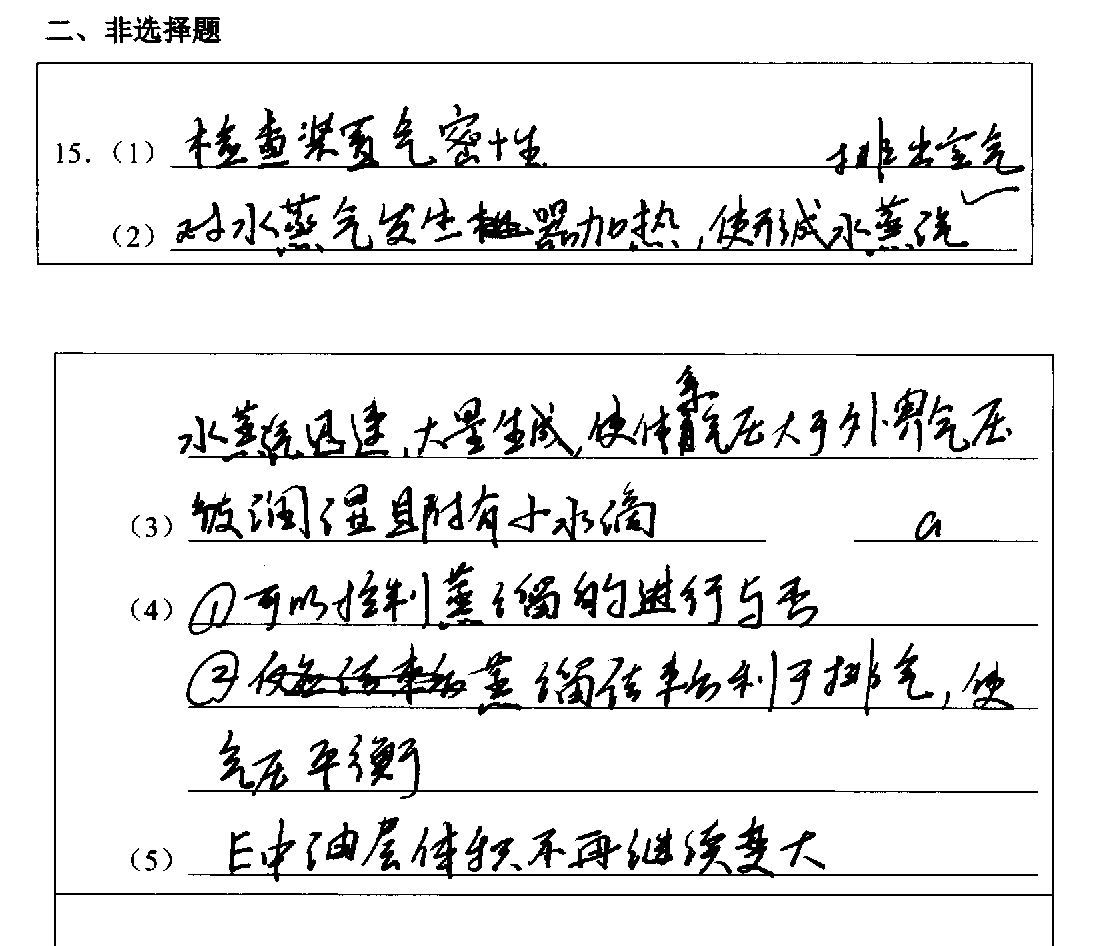 二、非选择题
15.（1）检查装置气密性 排出空气
（2）对水蒸气发生器加热,使形成水蒸汽
水蒸汽迅速,大量生成,使体系气压大于外界气压
（3）被润湿且附有小水滴 a
（4）①可以控制蒸馏的进行与否
②蒸馏结束后利于排气,使
气压平衡
（5）E中油层体积不再继续变大